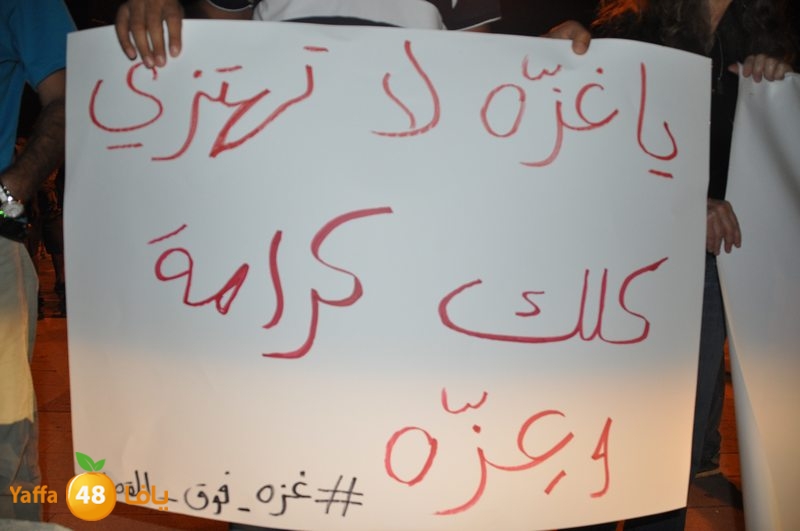 يا غزّه لا تهتزي
كلك كرامة
وعزّه
#غزه_فوق_
Yaffa 48 يافا